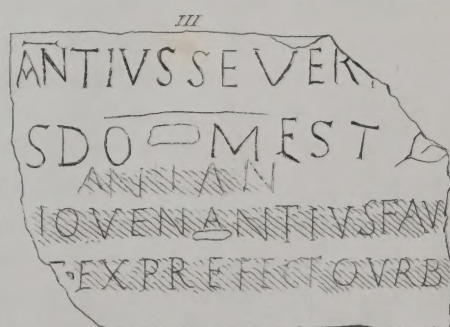 III
ANTIVSSEVER
SDOMEST
ANIAN
IOVENANTIVSFAV
EXPREFECTOVRB